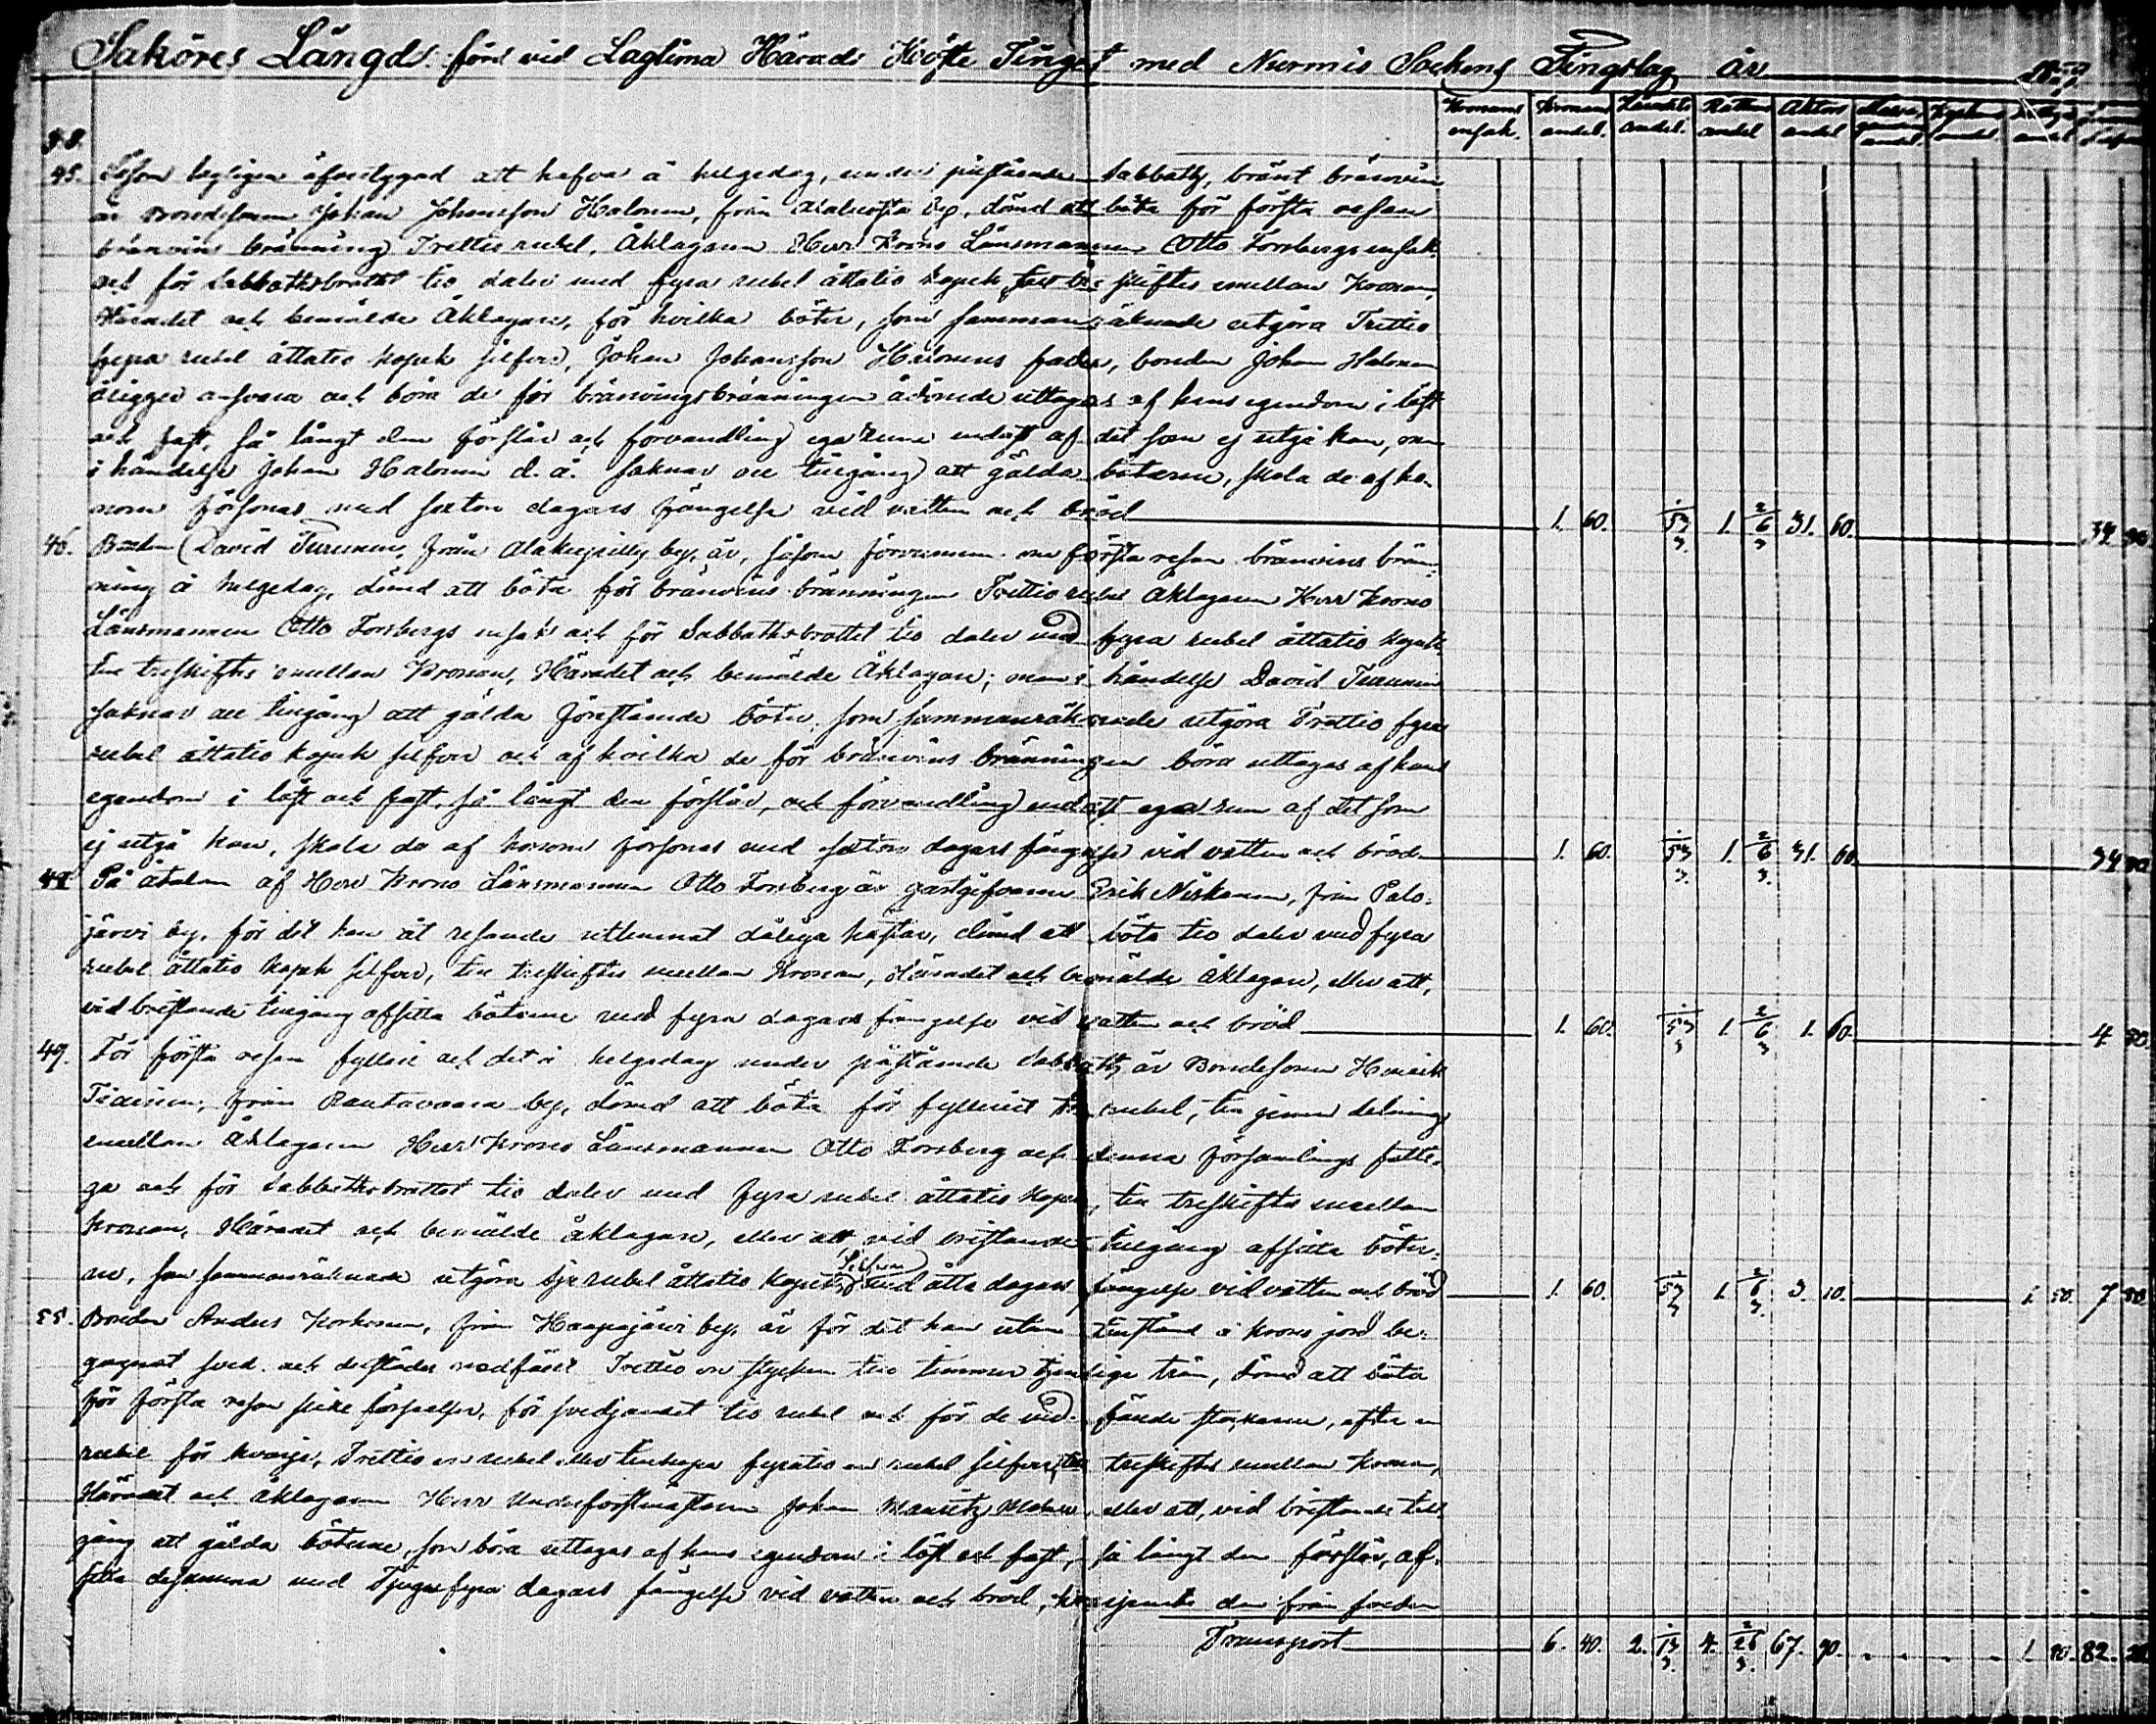 Saköres Längd förd vid Laglima Härads Höste Tinget med Nurmis Sockens Tingslag år
Kronans ensak. Kronans andel. Häradets andel. Rättens andel Aktors andel andel. andel. andel
§§.
45. Såsom lagligen öfvertygad att hafva å helgedag, under påstående Sabbath, bränt bränvin
är Bondesonen Johan Johansson Halonen, från by, dömd att böta för första resan
bränvins bränning Trettio rubel, Åklagaren Herr Krono Länsmannen Otto Forsbergs ensak
och för Sabbathsbrottet tio daler med fyra rubel åttatio kopek, att treskiftes emellan Kronan,
Häradet och bemälde Åklagare, för hvilka böter, som sammanräknade utgöra Trettio
fyra rubel åttatio kopek silfver, Johan Johansson Halonens fader, bonden Johan Halonen
åligger ansvara och böra de för bränvinsbränningen ådömde uttagas af hans egendom i löst
och fast, så långt den förslår och förvandling ega rum endast af det som ej utgå kan, men
i händelse Johan Halonen d.ä. saknar all tillgång att gälda böterne, skola de af ho-
nom försonas med sexton dagars fängelse vid vatten och bröd 1. 60. 53 1/3. 1. 6 2/3 31. 60. 34 80
46. Bonden David Turunen, från Alakeyritty by, är, såsom förvunnen om första resan bränvins brän-
ning å helgedag, dömd att böta för bränvins bränningen Trettio rubel Åklagaren Herr Krono
Länsmannen Otto Forsbergs ensak och för Sabbathsbrottet tio daler med fyra rubel åttatio kopek
att treskiftes emellan Kronan, Häradet och bemälde Åklagare; men i händelse David Turunen
saknar all tillgång att gälda förestående böter, som sammanräknade utgöra Trettio fyra
rubel åttatio kopek silfver och af hvilka de för bränvins bränningen böra uttagas af hans
egendom i löst och fast, så långt den förslår, och förvandling endast ega rum af det som
ej utgå kan, skola de af honom försonas med sexton dagars fängelse vid vatten och bröd 1. 60. 53 1/3. 1. 6 2/3 31. 60. 34 80
47. På åtalan af Herr Krono Länsmannen Otto Forsberg är gästgifvaren Erik Niskanen, från Palo-
järvi by, för det han åt resande utlemnat dåliga hästar, dömd att böta tio daler med fyra
rubel åttatio kopek silfver, att treskiftes emellan Kronan, Häradet och bemälde Åklagare, eller att,
vid bristande tillgång afsitta böterne med fyra dagars fängelse vid vatten och bröd 1. 60. 53 1/3 1. 6 2/3 1. 60. 4 80.
49. För första resan fylleri och det å helgedag under påstående Sabbath, är Bondesonen Henrik
Tiainen, från Rautavaara by, dömd att böta för fylleriet tre rubel, till jemn delning
emellan Åklagaren Herr Krono Länsmannen Otto Forsberg och denna församlings fatti-
ga och för Sabbathsbrottet tio daler med fyra rubel åttatio kopek, att treskiftes emellan
Kronan, Häradet och bemälde åklagare, eller att vid bristande tillgång afsitta böter-
ne, som sammanräknade utgöra sju rubel åttatio kopek Silfver med åtta dagars fängelse vid vatten och bröd 1. 60. 53 1/3 1. 6 2/3. 3. 10. 1. 50. 7 80
55. Bonden Anders Korhonen, från Haapajärvi by, är för det han utan tillstånd å krono jord be-
gagnat sved och derstädes nedfällt Trettio en stycken till timmer tjenlige trän, dömd att böta
för första resan slike förseelser, för svedjandet tio rubel och för de ned- fällde stockarne, efter en
rubel för hvarje, Trettio en rubel eller tillhopa fyratio en rubel silfver, att treskiftes emellan Kronan,
Häradet och åklagaren Herr Underforstmästaren Johan Mauritz eller att, vid bristande till-
gång att gälda böterne, som böra uttagas af hans egendom i löst och fast, så långt den förslår, af-
sitta desamma med Tjugufyra dagars fängelse vid vatten och bröd, den från sveden
Transport 6. 40. 2. 13 1/3. 4. 26 2/3. 67. 90. 1. 50. 82. 20